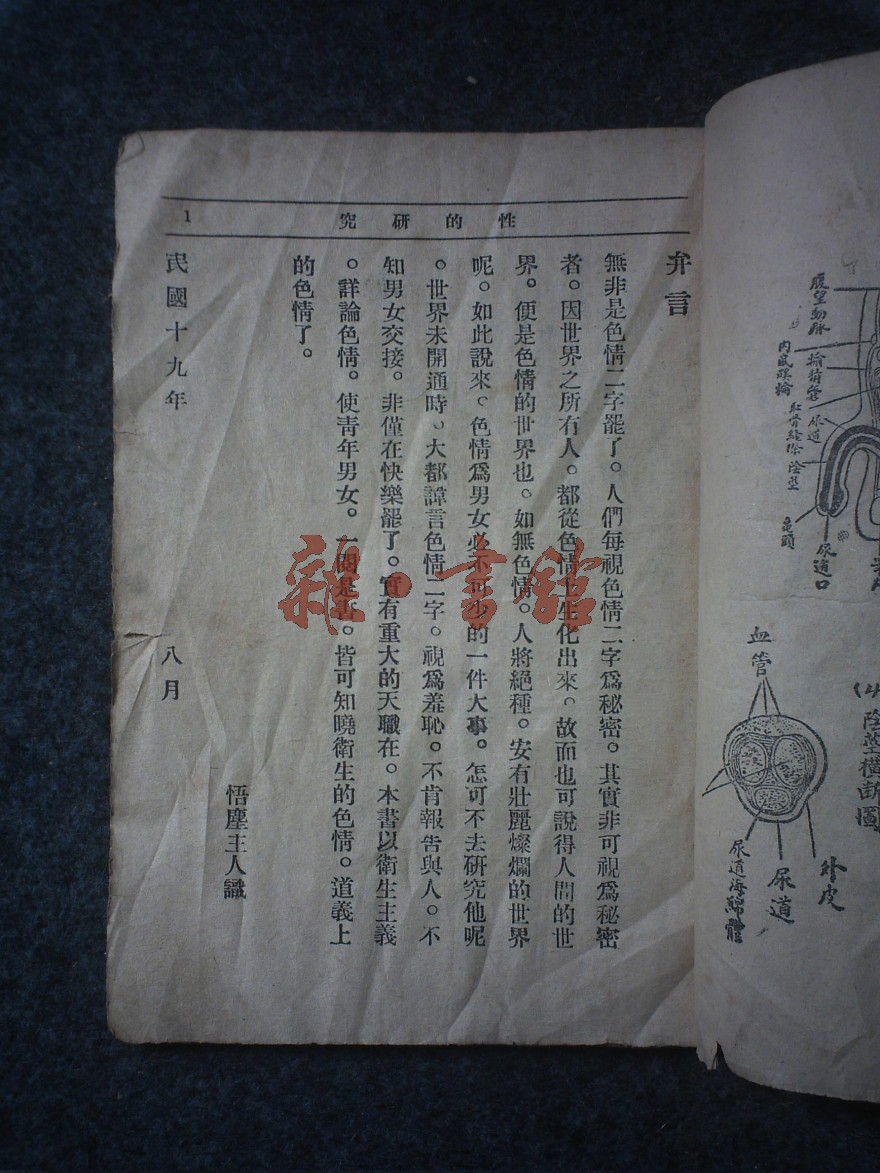 性的研究
1
弁言
無非是色情二字罷了。人們每視色情二字爲秘密。其實非可視爲秘密
者。因世界之所有人。都從色情上生化出來。故而也可說得人間的世
界。便是色情的世界也。如無色情。人將絕種。安有壯麗燦爛的世界
呢。如此說來。色情爲男女必不可少的一件大事。怎可不去研究他呢
。世界未開通時。大都諱言色情二字。視爲羞恥。不肯報告與人。不
知男女交接。非僅在快樂罷了。實有重大的天職在。本書以衛生主義
。詳論色情。使青年男女。一閱是書。皆可知曉衛生的色情。道義上
的色情了。
悟塵主人識
民國十九年 八月
輸精管
尿道
陰莖
龜頭
尿道口
陰莖橫斷圖
血管
外皮
尿道
尿道海綿體
雜·書館